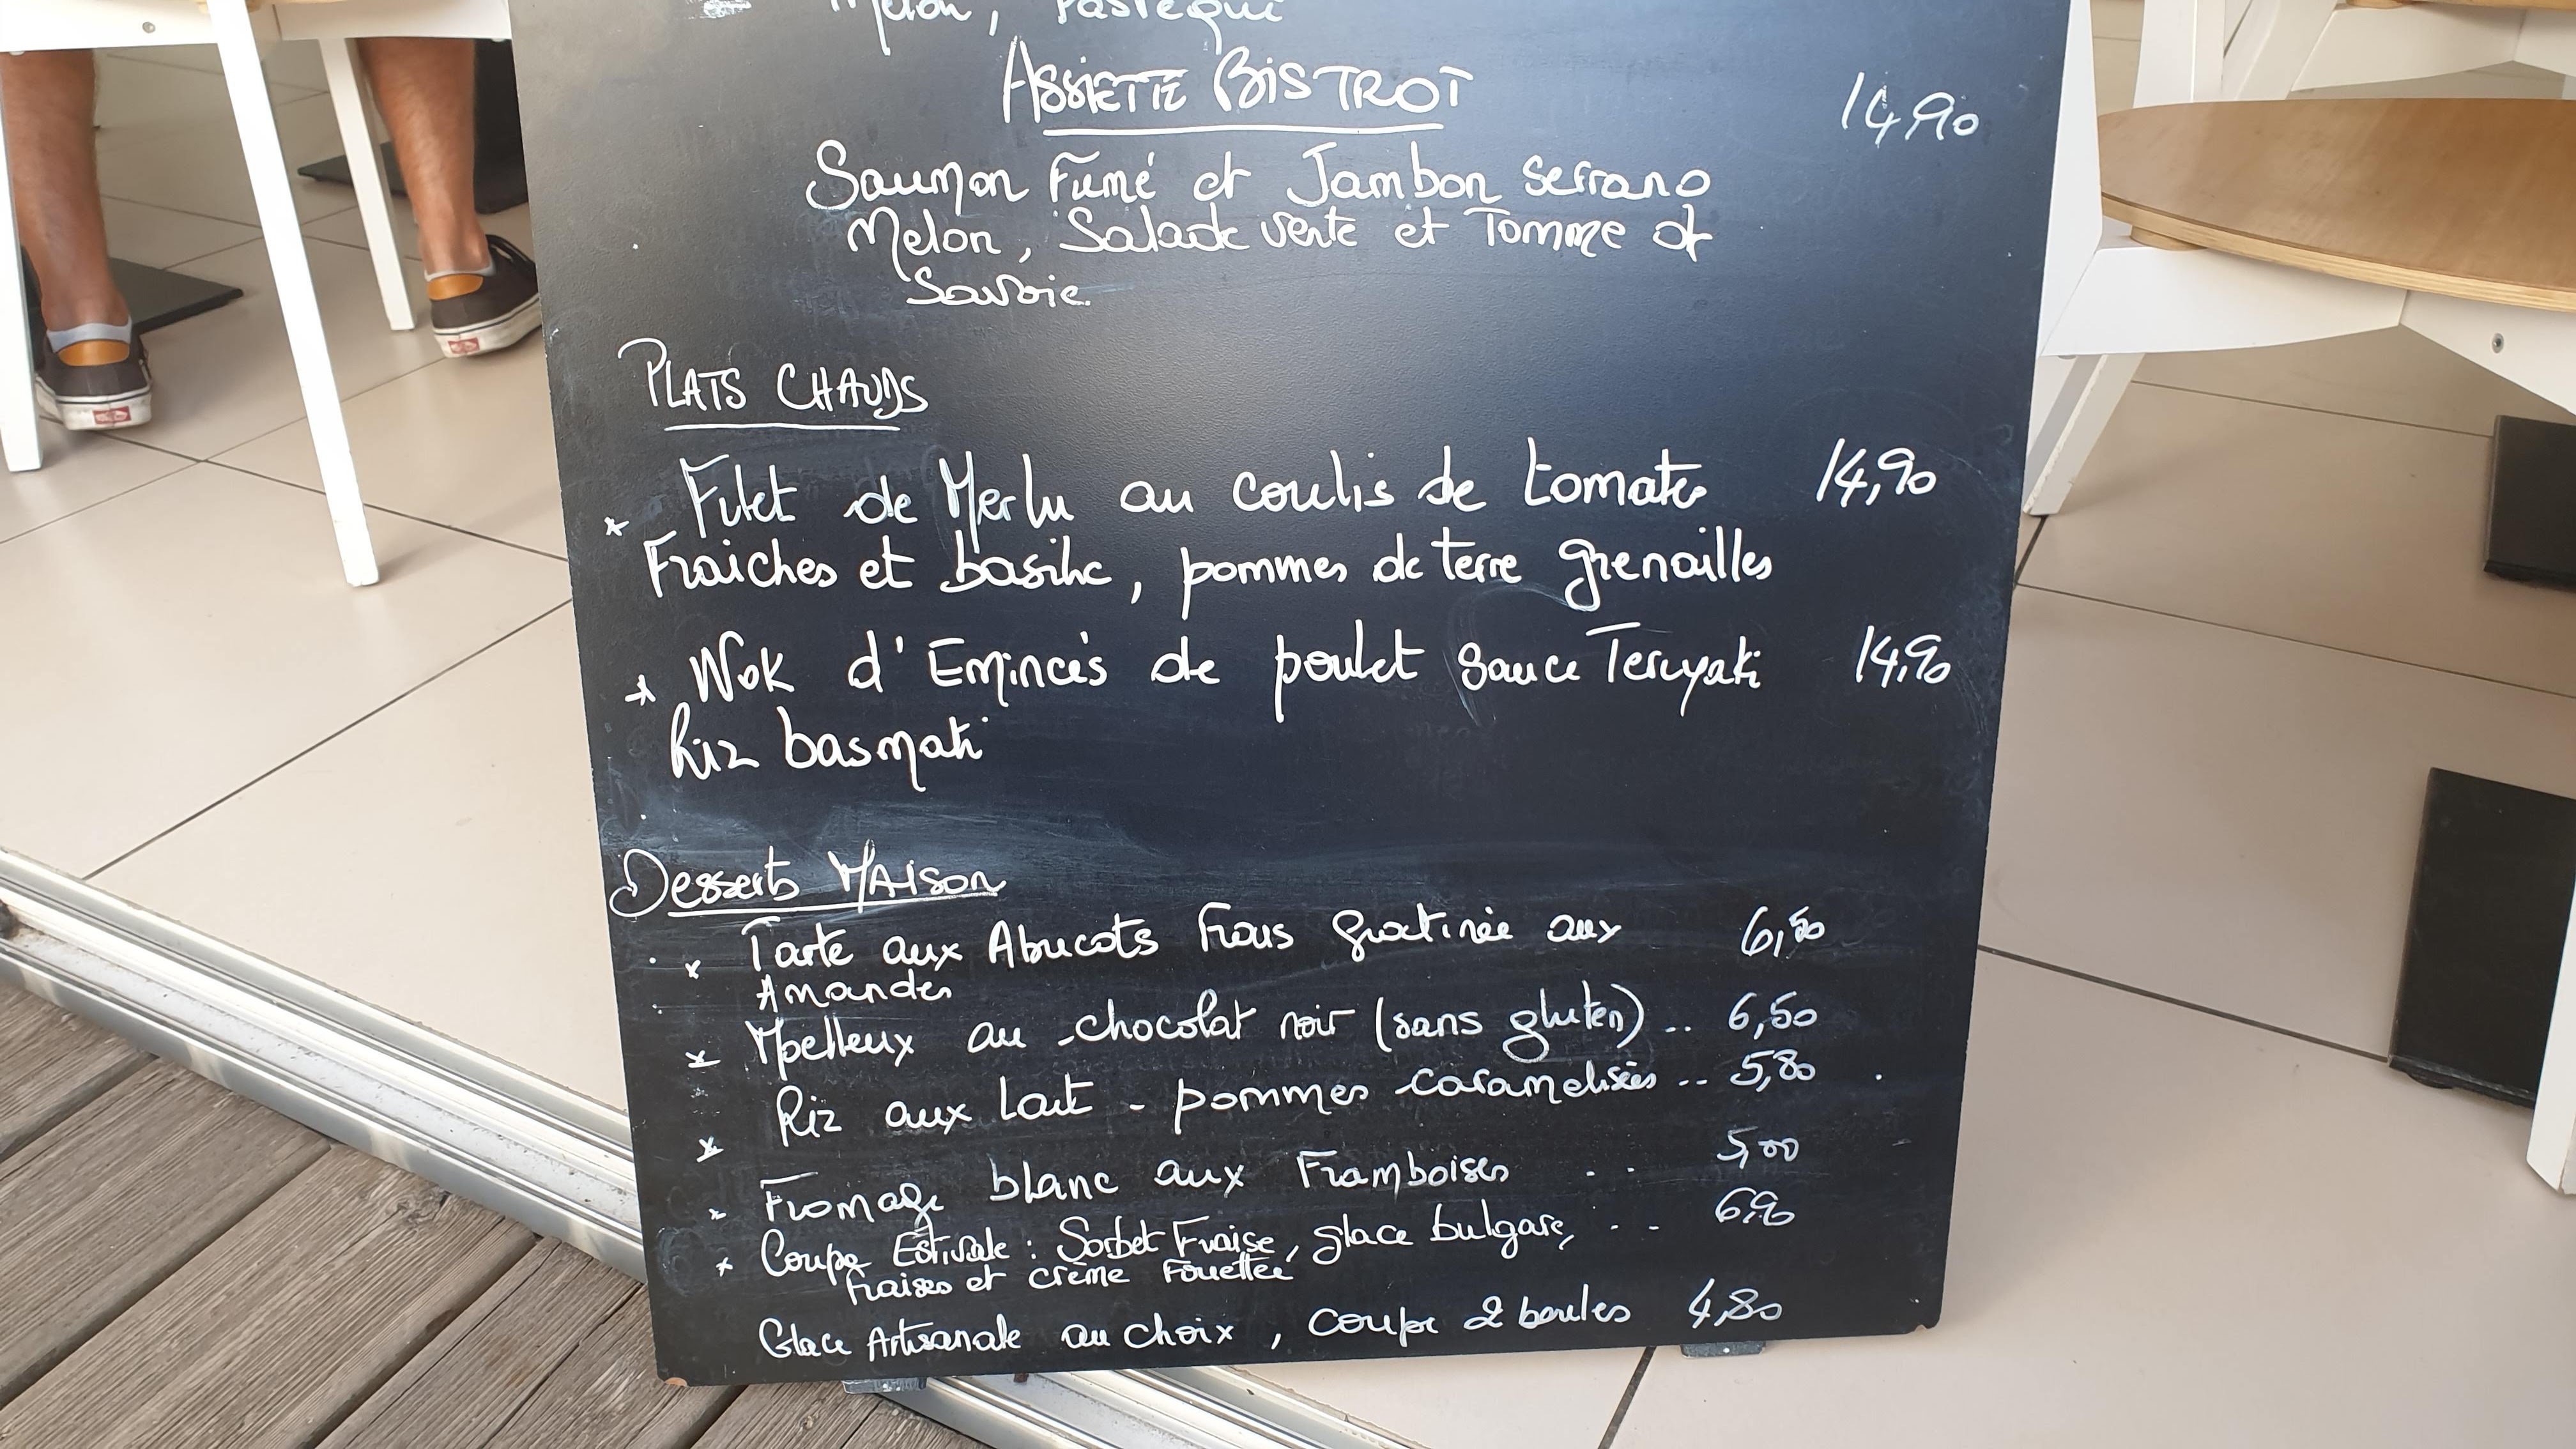 Melon, Pastèque
ASSIETTE BISTROT 14,90
Saumon Fumé et Jambon Serrano
Melon, Salade verte et Tomme de
Savoie.
PLATS CHAUDS
* Filet de Merlu au coulis de tomates 14,90
Fraiches et basilic, pommes de terre grenailles
* Wok d'Emincés de poulet sauce Teriyaki 14,90
Riz basmati
Desserts MAISON
* Tarte aux Abricots Frais gratinée aux 6,50
Amandes
* Moelleux au chocolat noir (sans gluten) .. 6,50
* Riz aux Lait - pommes caramelisées .. 5,80
* Fromage blanc aux Framboises .. 5,00
* Coupe Estivale : Sorbet Fraise, glace bulgare, .. 6,90
fraises et crème Fouettée
Glace Artisanale au choix, coupe 2 boules 4,80